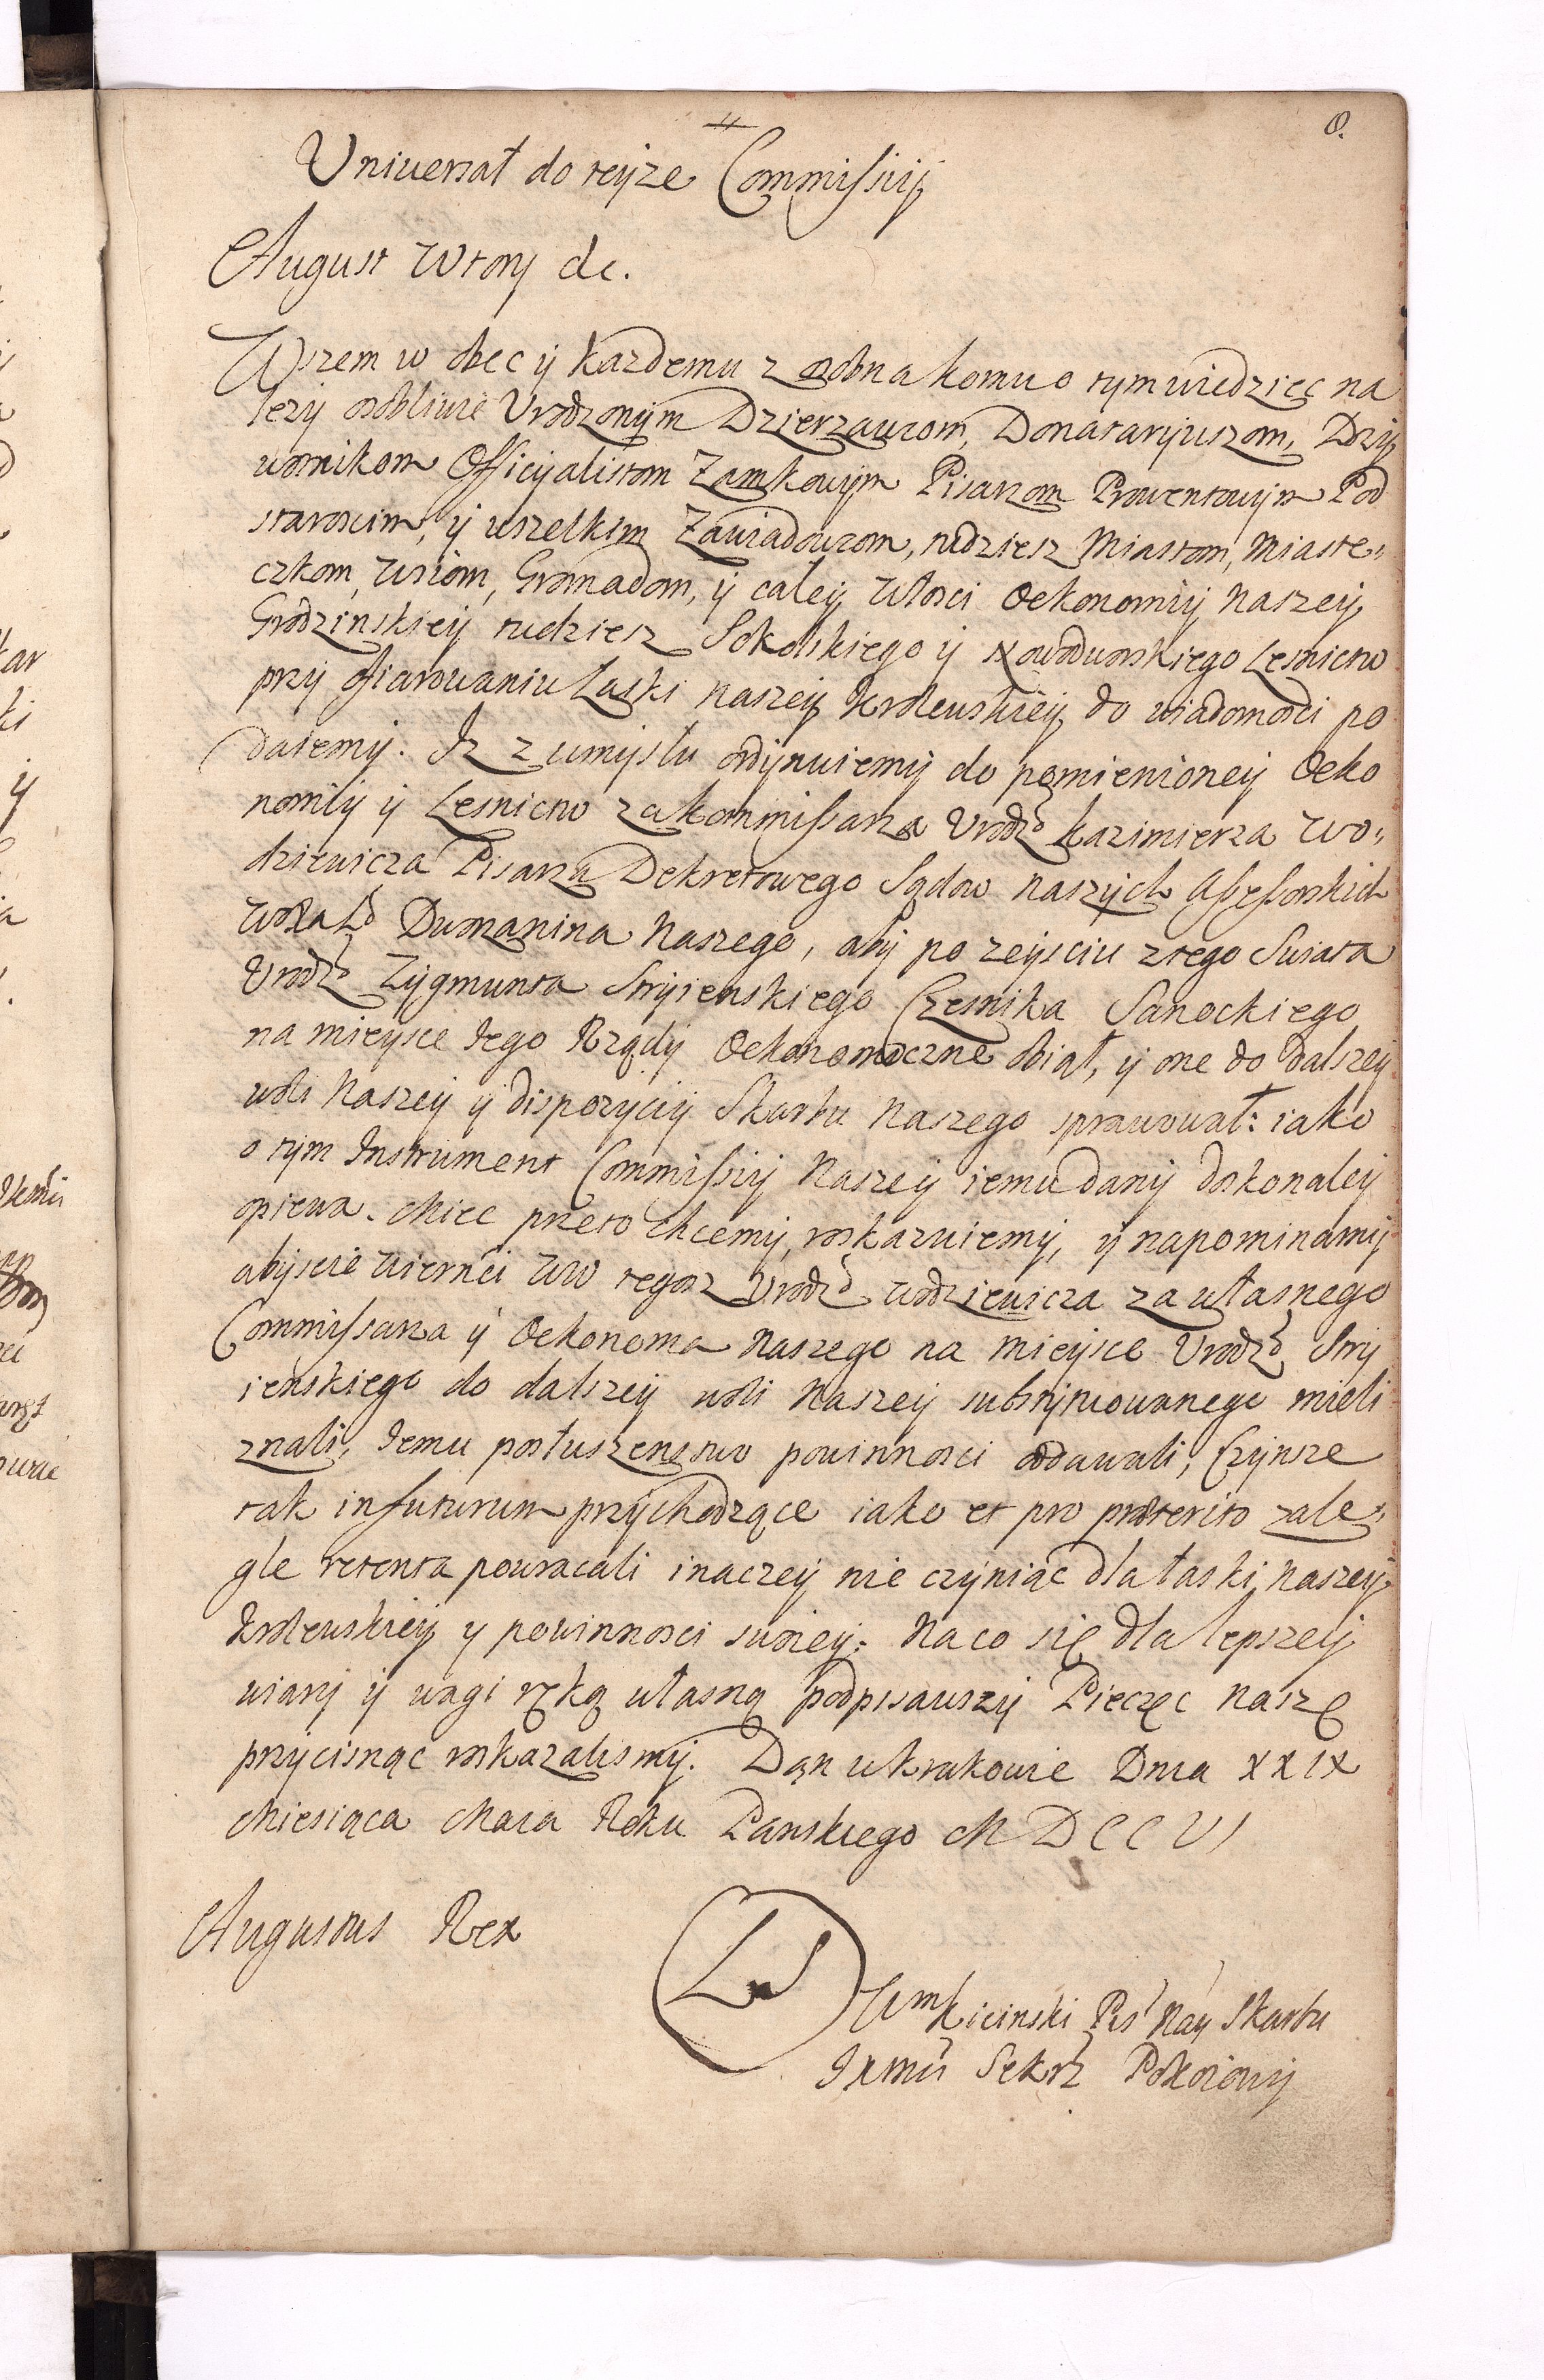 8.
Uniuersał do teyze Commissiij
August Wtory &c.
Wszem w obec ÿ kazdemu z osobna komu o tym wiedziec na
lezÿ osobliwie Urodzonÿm Dzierzawcom, Donatarÿuszom, Dozÿ
wotnikom Officÿalistom Zamkowÿm Pisarzom Prowentowÿm Pod
staroscim, ÿ wszelkim Zawiadowcom, tudziesz Miastom, Miaste„
czkom, Wsiom, Gromadom, ÿ całeÿ Włosci Oekonomiÿ Naszeÿ
Grodzinskieÿ tudziesz Sokolskiego ÿ Nowodworskiego Lesnictw
przÿ ofiarowaniu Łaski Naszeÿ Krolewskieÿ do wiadomosci po
daiemÿ. Iz z umÿsłu ordÿnuiemÿ do pomienioneÿ Oeko
nomiÿ ÿ Lesnictw za Kommissarza Urodz° Kazimierza Wo„
dziewicza Pisarza Dekretowego Sądow Naszÿch Assessorskich
Dworzanina Naszego, abÿ po zeÿsciu z tego Swiata
Urodz° Zÿgmunta Strÿienskiego Czesnika Sanockiego
na mieÿsce Iego Rządÿ Oekonomiczne obiął, ÿ one do dalszeÿ
woli Naszeÿ ÿ dispozÿciÿ Skarbu Naszego sprawował: iako
o tym Instrument Commissiÿ Naszeÿ iemu danÿ doskonaleÿ
opiewa. Miec przeto chcemÿ, roskazuiemÿ, ÿ napominamÿ
abÿscie Wiernosci WW tegosz Urodz° Wodziewicza za własnego
Commissarza ÿ Oekonoma Naszego na mieÿsce Urodz° Strÿ
ienskiego do dalszeÿ woli Naszeÿ substÿtuowanego mieli
znali, Iemu posłuszenstwo powinnosci oddawali, Czÿnsze
tak in futurum przÿchodzące iako et pro praeterito zale„
głe retenta powracali inaczeÿ nie czÿniąc dla łaski Naszeÿ
Krolewskieÿ y powinnosci swoieÿ. Na co się dla lepszeÿ
wiarÿ ÿ wagi ręką własną podpisawszÿ Pieczęc Naszę
przÿcisnąc roskazalismÿ. Dan w Krakowie Dnia XXIX
Miesiąca Maia Roku Panskiego MDCCVI
Augustus Rex
LS
Kicinski Pis Naÿ Skarbu
IKMci Sekrz Pokoiowÿ